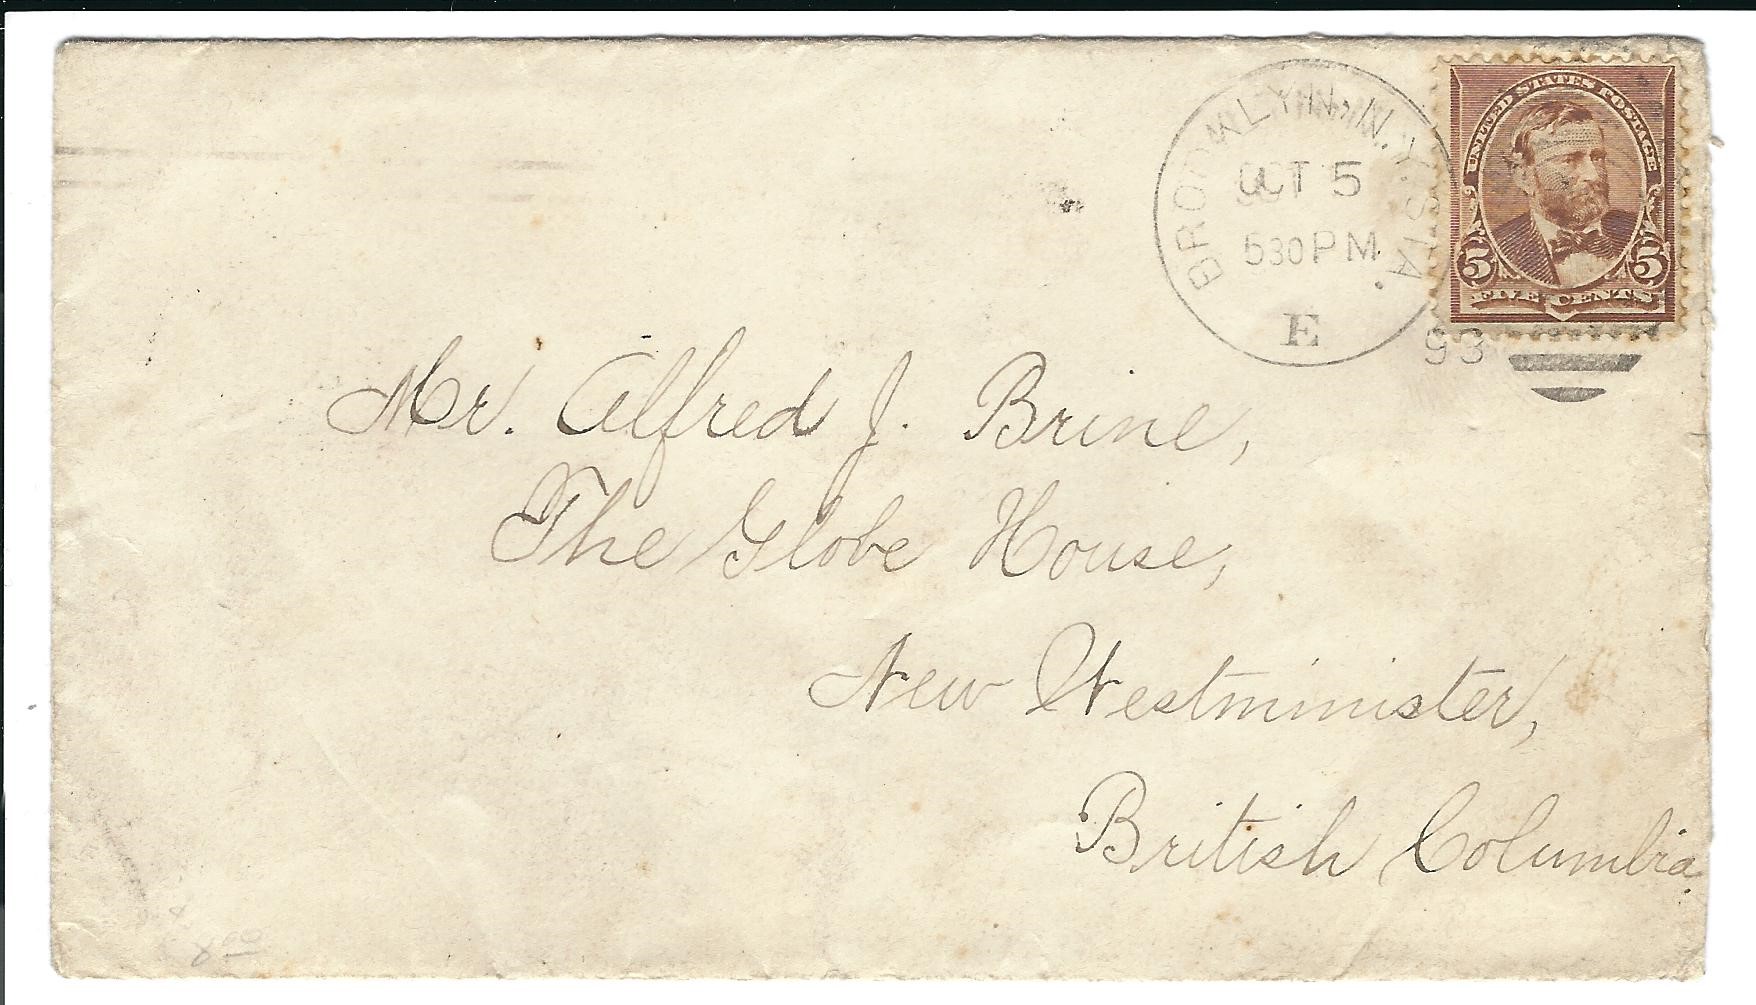 BROOKLYN, N.Y. STA.
OCT 5
530 PM
E
93
UNITED STATES POSTAGE
5 5
FIVE CENTS
Mr. Alfred J. Brine,
The Globe House,
New Westminister,
British Columbia.